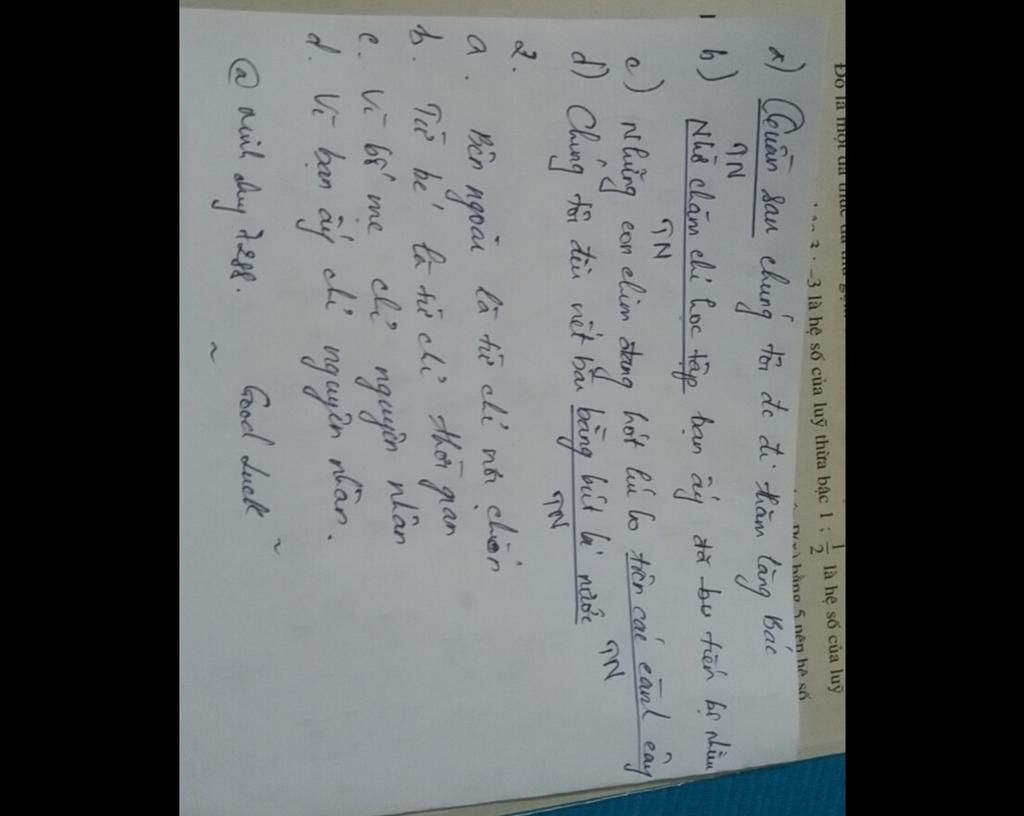 Đó là một đa thức đã thu gọn
-3 là hệ số của luỹ thừa bậc 1 ; 1/2 là hệ số của luỹ
bằng 5 nên hệ số
a) Tuần sau chúng tôi đi thăm lăng Bác
TN
b) Nhờ chăm chỉ học tập bạn ấy đã tiến bộ nhiều
TN
c) Những con chim đang hót líu lo trên các cành cây
TN
d) Chúng tôi đều viết bài bằng bút bi nước
TN
2.
a. Bên ngoài là từ chỉ nơi chốn
b. Từ bé là từ chỉ thời gian
c. Vì bố mẹ chỉ nguyên nhân
d. Vì bạn ấy chỉ nguyên nhân.
@ minh duy 7288.
~ Good Luck ~